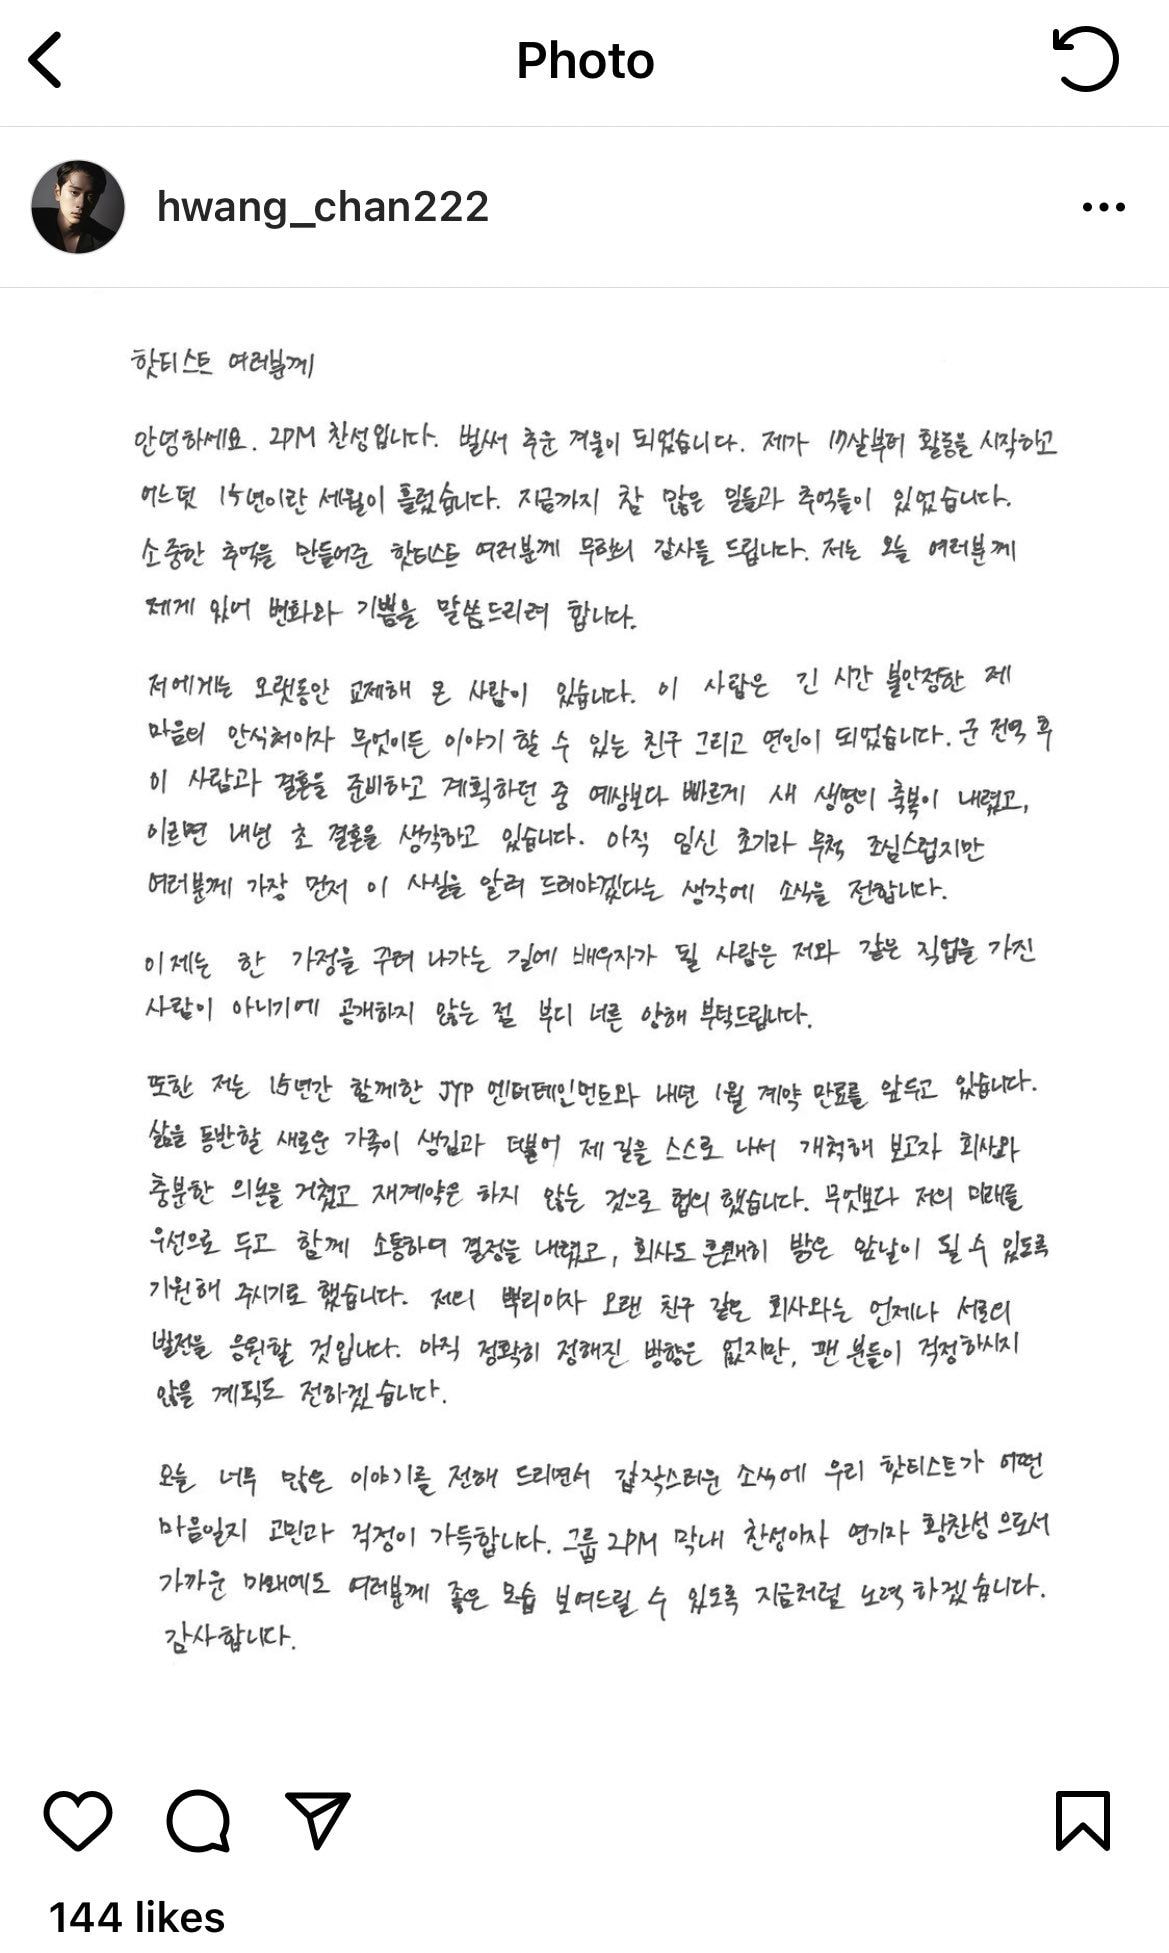 Photo
hwang_chan222
핫티스트 여러분께
안녕하세요. 2PM 찬성입니다. 벌써 추운 겨울이 되었습니다. 제가 17살부터 활동을 시작하고
어느덧 15년이란 세월이 흘렀습니다. 지금까지 참 많은 일들과 추억들이 있었습니다.
소중한 추억을 만들어준 핫티스트 여러분께 무한의 감사를 드립니다. 저는 오늘 여러분께
제게 있어 변화와 기쁨을 말씀드리려 합니다.
저에게는 오랫동안 교제해 온 사람이 있습니다. 이 사람은 긴 시간 불안정한 제
마음의 안식처이자 무엇이든 이야기 할 수 있는 친구 그리고 연인이 되었습니다. 군 전역 후
이 사람과 결혼을 준비하고 계획하던 중 예상보다 빠르게 새 생명의 축복이 내렸고,
이르면 내년 초 결혼을 생각하고 있습니다. 아직 임신 초기라 무척 조심스럽지만
여러분께 가장 먼저 이 사실을 알려 드려야겠다는 생각에 소식을 전합니다.
이제는 한 가정을 꾸려 나가는 길에 배우자가 될 사람은 저와 같은 직업을 가진
사람이 아니기에 공개하지 않는 점 부디 너른 양해 부탁드립니다.
또한 저는 15년간 함께한 JYP 엔터테인먼트와 내년 1월 계약 만료를 앞두고 있습니다.
삶을 동반할 새로운 가족이 생김과 더불어 제 길을 스스로 나서 개척해 보고자 회사와
충분한 의논을 거쳤고 재계약은 하지 않는 것으로 협의 했습니다. 무엇보다 저의 미래를
우선으로 두고 함께 소통하며 결정을 내렸고, 회사도 흔쾌히 밝은 앞날이 될 수 있도록
기원해 주시기로 했습니다. 저의 뿌리이자 오랜 친구 같은 회사와는 언제나 서로의
발전을 응원할 것입니다. 아직 정확히 정해진 방향은 없지만, 팬 분들이 걱정하시지
않을 계획도 전하겠습니다.
오늘 너무 많은 이야기를 전해 드리면서 갑작스러운 소식에 우리 핫티스트가 어떤
마음일지 고민과 걱정이 가득합니다. 그룹 2PM 막내 찬성이자 연기자 황찬성으로서
가까운 미래에도 여러분께 좋은 모습 보여드릴 수 있도록 지금처럼 노력 하겠습니다.
감사합니다.
144 likes